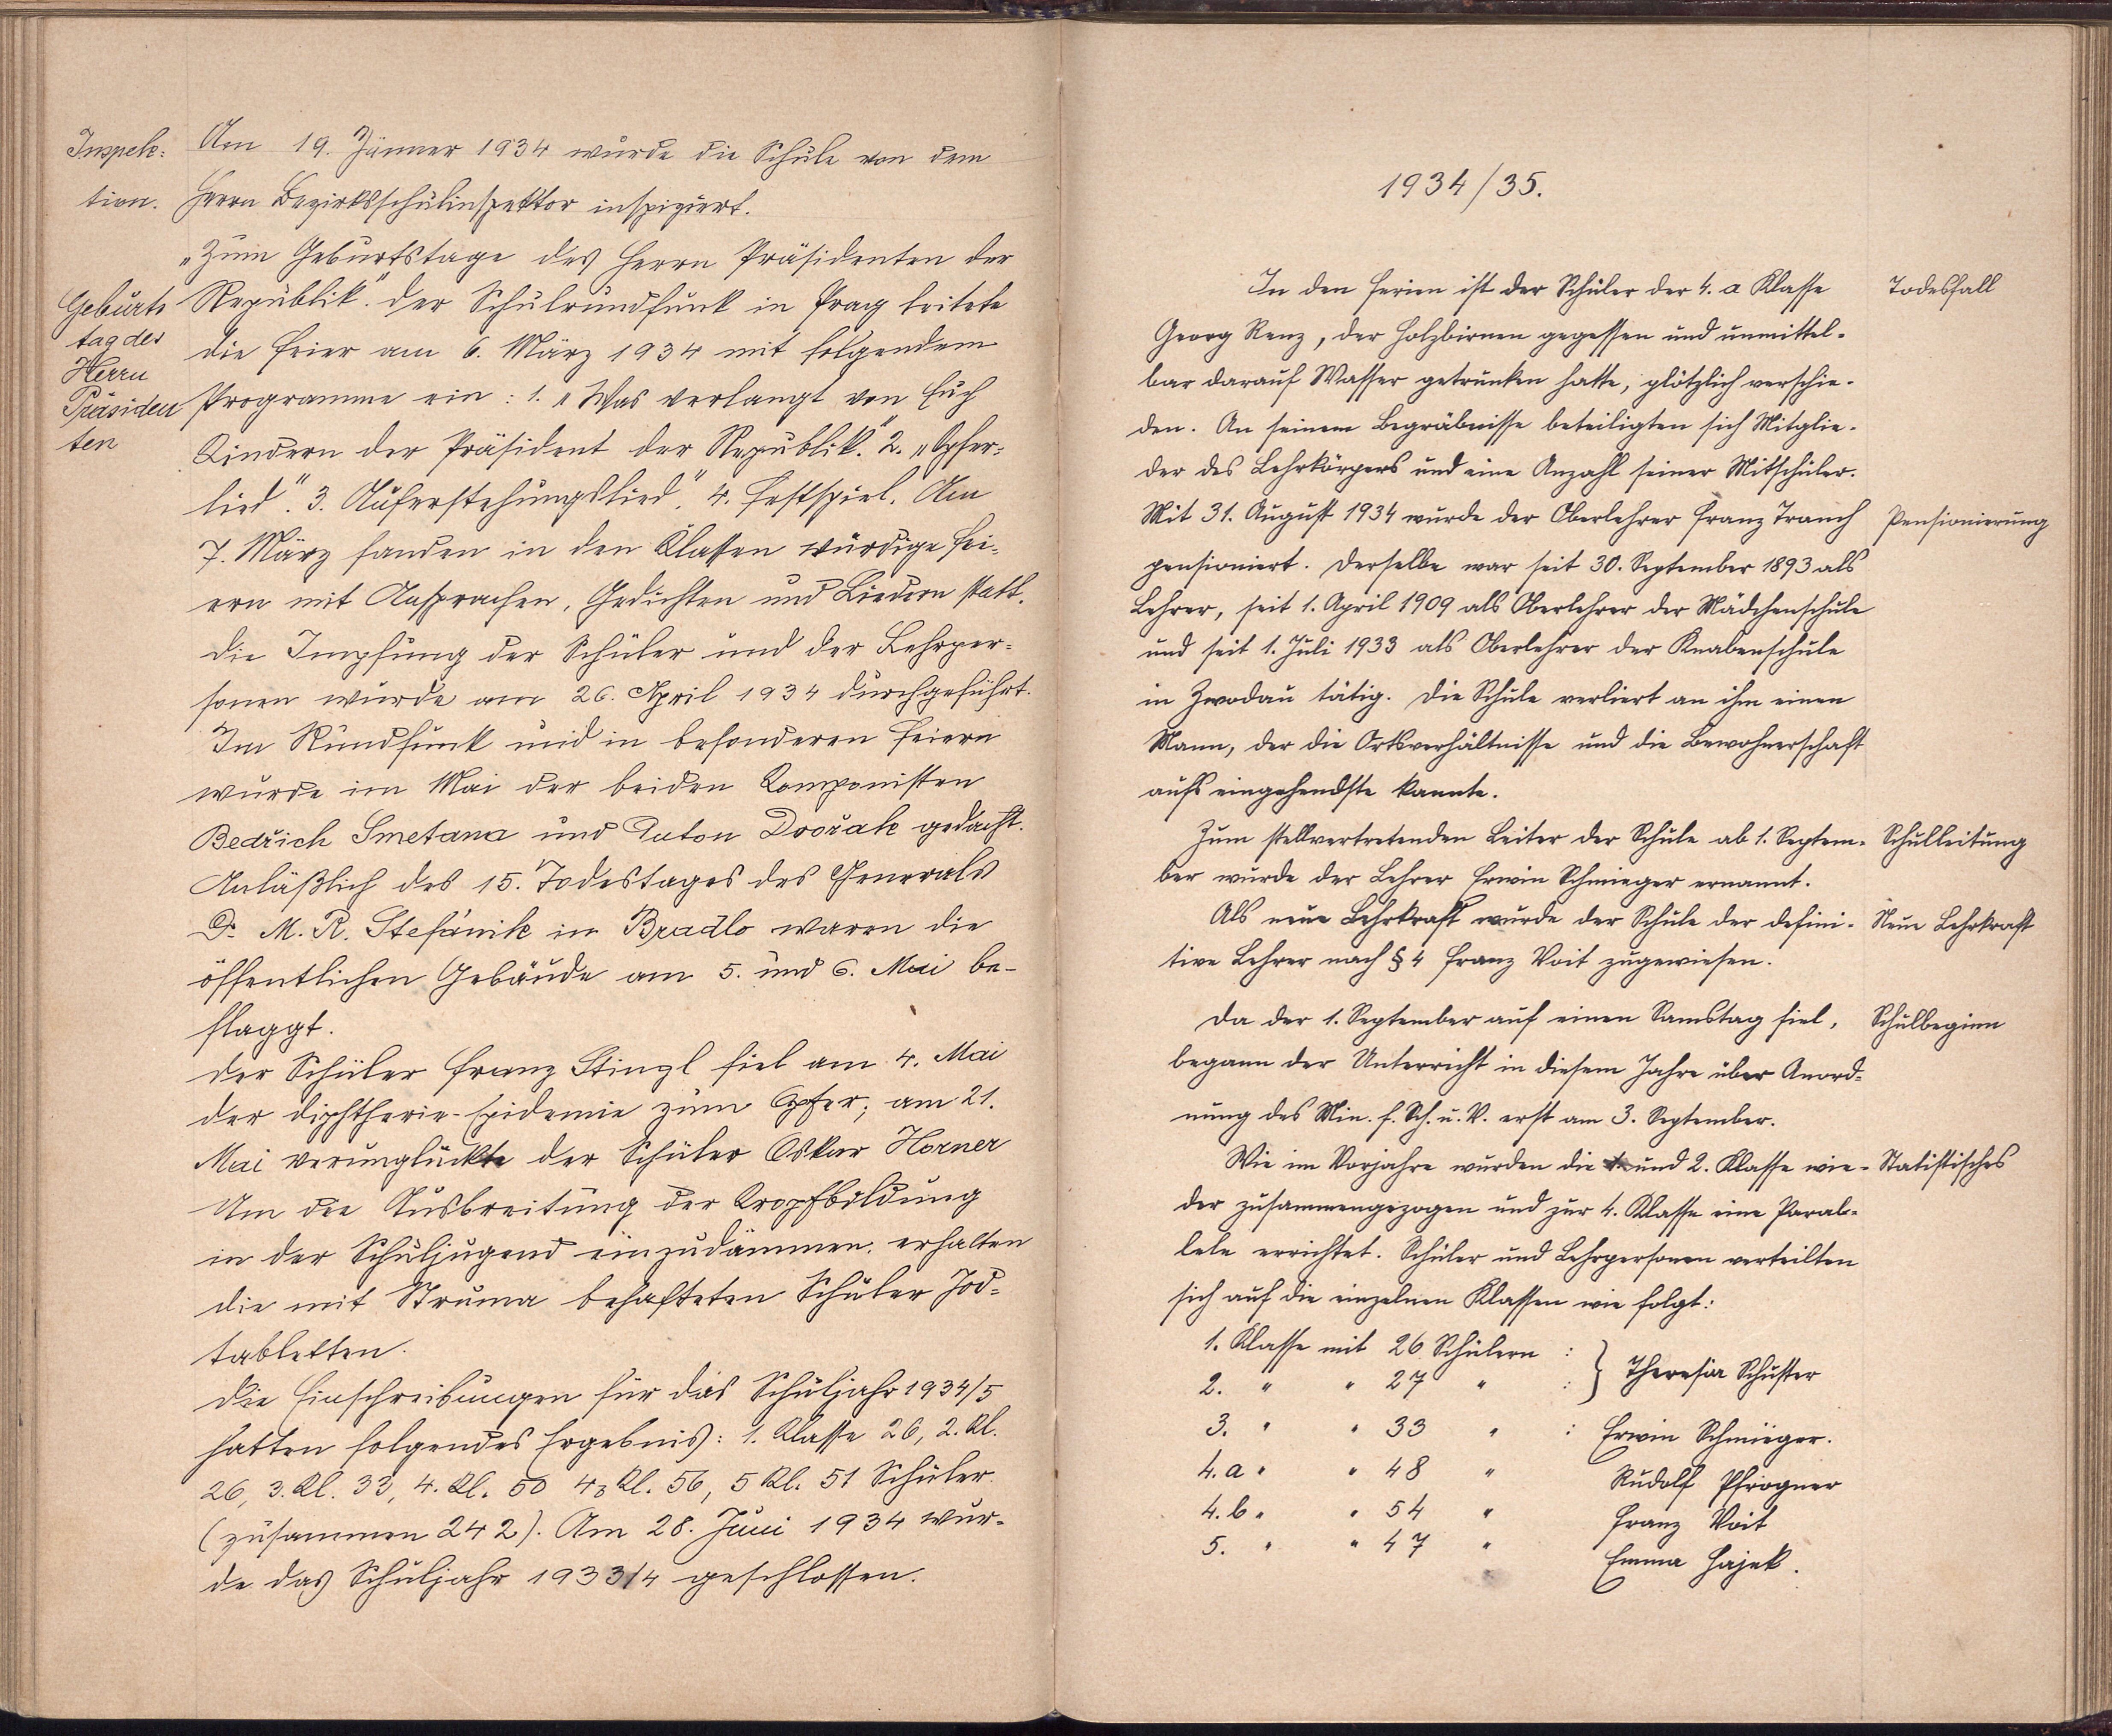 Inspek-
tion.
Am 19. Jänner 1934 wurde die Schule von dem
Herrn Bezirksschulinspektor inspiziert.
Geburts
tag des
Herrn
Präsiden
ten
„Zum Geburtstage des Herrn Präsidenten der
Republik." Der Schulrundfunk in Prag leitete
die Feier am 6. März 1934 mit folgendem
Programme ein: 1. „Was verlangt von Euch
Kindern der Präsident der Republik." 2. „Opfer-
lied". 3. Auferstehungslied". 4. Festspiel. Am
7. März fanden in den Klassen würdige Fei-
ern mit Ansprachen, Gedichten und Liedern statt.
Die Impfung der Schüler und der Lehrper-
sonen wurde am 26. April 1934 durchgeführt.
Im Rundfunk und in besonderen Feiern
wurde im Mai der beiden Komponisten
Bedřich Smetana und Anton Dvořak gedacht.
Anläßlich des 15. Todestages des Generals
Dr. M. R. Stefánik in Bradlo waren die
öffentlichen Gebäude am 5. und 6. Mai be-
flaggt.
Der Schüler Franz Stingl fiel am 4. Mai
der Diphtherie-Epidemie zum Opfer; am 21.
Mai verunglückte der Schüler Oskar Horner
Um die Ausbreitung der Kropfbildung
in der Schuljugend einzudämmen, erhalten
die mit Struma behafteten Schüler Jod-
tabletten.
Die Einschreibungen für das Schuljahr 1934/5
hatten folgendes Ergebnis: 1. Klasse 26, 2. Kl.
26, 3. Kl. 33, 4. Kl. 50 4b Kl. 56, 5 Kl. 51 Schüler.
(zusammen 242). Am 28. Juni 1934 wur-
de das Schuljahr 1933/4 geschlossen.
1934/35.
In den Ferien ist der Schüler der 4. a Klasse
Todesfall
Georg Renz, der Holzbirnen gegessen und unmittel-
bar darauf Wasser getrunken hatte, plötzlich verschie-
den. An seinem Begräbnisse beteiligten sich Mitglie-
der des Lehrkörpers und eine Anzahl seiner Mitschüler.
Mit 31. August 1934 wurde der Oberlehrer Franz Tranch
Pensionierung
pensioniert. Derselbe war seit 30. September 1893 als
Lehrer, seit 1. April 1909 als Oberlehrer der Mädchenschule
und seit 1. Juli 1933 als Oberlehrer der Knabenschule
in Zwodau tätig. Die Schule verliert an ihm einen
Mann, der die Ortsverhältnisse und die Bewohnerschaft
aufs eingehendste kannte.
Zum stellvertretenden Leiter der Schule ab 1. Septem-
Schulleitung
ber wurde der Lehrer Erwin Schmieger ernannt.
Als neue Lehrkraft wurde der Schule der defini-
Neue Lehrkraft
tive Lehrer nach § 4 Franz Voit zugewiesen.
Da der 1. September auf einen Samstag fiel,
Schulbeginn
begann der Unterricht in diesem Jahre über Anord-
nung des Min. f. Sch. u. V. erst am 3. September.
Wie im Vorjahre wurden die 1. und 2. Klasse wie-
Statistisches
der zusammengezogen und zur 4. Klasse eine Paral-
lele errichtet. Schüler und Lehrpersonen verteilten
sich auf die einzelnen Klassen wie folgt:
1. Klasse mit 26 Schülern : } Theresia Schuster
2. " " 27 " :
3. " " 33 " : Erwin Schmieger.
4. a " " 48 " Rudolf Pfrogner
4. b " " 54 " Franz Voit
5. " " 47 " Emma Hajek.